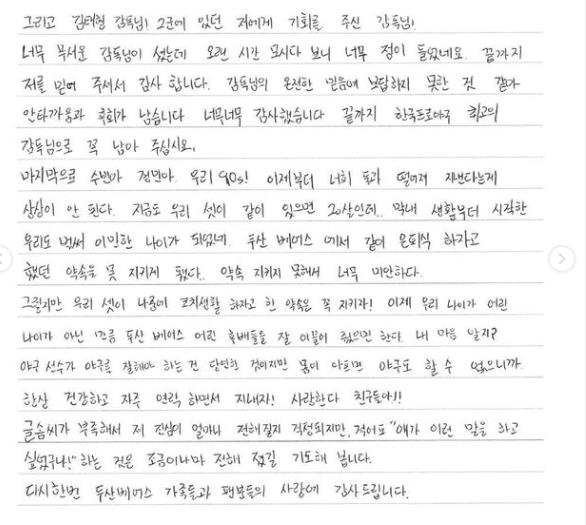 그리고 김태형 감독님! 2군에 있던 저에게 기회를 주신 감독님!
너무 무서운 감독님이 셨는데 오랜 시간 모시다 보니 너무 정이 들었네요. 끝까지
저를 믿어 주셔서 감사 합니다. 감독님의 온전한 믿음에 보답하지 못한 것 같아
안타까움과 후회가 남습니다 너무너무 감사했습니다 끝까지 한국프로야구 최고의
감독님으로 꼭 남아 주십시요.
마지막으로 수빈아 건민아. 우리 90s! 이제부터 너희 둘과 떨어져 지낸다는게
상상이 안 된다. 지금도 우리 셋이 같이 있으면 20살인데.. 막내 생활부터 시작한
우리도 벌써 이만한 나이가 되었네. 두산 베어스 에서 같이 은퇴식 하자고
했던 약속을 못 지키게 됐다.. 약속 지키지 못해서 너무 미안하다.
그렇지만 우리 셋이 나중에 코치생활 하자고 한 약속은 꼭 지키자! 이제 우리 나이가 어린
나이가 아닌 만큼 두산 베어스 어린 후배들을 잘 이끌어 줬으면 한다. 내 마음 알지?
야구 선수가 야구를 잘해야 하는 건 당연한 것이지만 몸이 아프면 야구도 할 수 없으니까
항상 건강하고 자주 연락 하면서 지내자! 사랑한다 친구들아!!
글솜씨가 부족해서 저 진심이 얼마나 전해질지 걱정되지만, 적어도 "얘가 이런 말을 하고
싶었구나!" 하는 것은 조금이나마 전해 졌길 기도해 봅니다.
다시한번 두산베어스 가족들과 팬분들의 사랑에 감사드립니다.